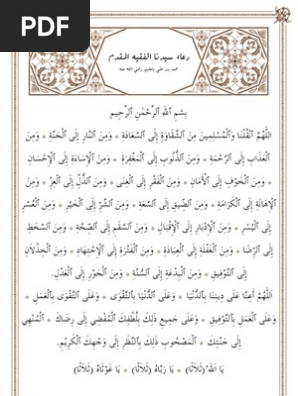 PDF
دعاء سيدنا الفقيه المقدم
محمد بن علي باعلوي رضي الله عنه
بِسْمِ اللهِ الرَّحْمٰنِ الرَّحِيمِ
اللَّهُمَّ انْقُلْنَا وَالْمُسْلِمِينَ مِنَ الشَّقَاوَةِ إِلَى السَّعَادَةِ * وَمِنَ النَّارِ إِلَى الْجَنَّةِ * وَمِنَ
الْعَذَابِ إِلَى الرَّحْمَةِ * وَمِنَ الذُّنُوبِ إِلَى الْمَغْفِرَةِ * وَمِنَ الْإِسَاءَةِ إِلَى الْإِحْسَانِ
* وَمِنَ الْخَوْفِ إِلَى الْأَمَانِ * وَمِنَ الْفَقْرِ إِلَى الْغِنَى * وَمِنَ الذُّلِّ إِلَى الْعِزِّ * وَمِنَ
الْإِهَانَةِ إِلَى الْكَرَامَةِ * وَمِنَ الضِّيقِ إِلَى السَّعَةِ * وَمِنَ الشَّرِّ إِلَى الْخَيْرِ * وَمِنَ الْعُسْرِ
إِلَى الْيُسْرِ * وَمِنَ الْإِدْبَارِ إِلَى الْإِقْبَالِ * وَمِنَ السَّقَمِ إِلَى الصِّحَّةِ * وَمِنَ السَّخَطِ
إِلَى الرِّضَا * وَمِنَ الْغَفْلَةِ إِلَى الْعِبَادَةِ * وَمِنَ الْفَتْرَةِ إِلَى الْاِجْتِهَادِ * وَمِنَ الْخِذْلَانِ
إِلَى التَّوْفِيقِ * وَمِنَ الْبِدْعَةِ إِلَى السُّنَّةِ * وَمِنَ الْجَوْرِ إِلَى الْعَدْلِ.
اَللَّهُمَّ أَعِنَّا عَلَى دِينِنَا بِالدُّنْيَا * وَعَلَى الدُّنْيَا بِالتَّقْوَى * وَعَلَى التَّقْوَى بِالْعَمَلِ *
وَعَلَى الْعَمَلِ بِالتَّوْفِيقِ * وَعَلَى جَمِيعِ ذَلِكَ بِلُطْفِكَ الْمُفْضِي إِلَى رِضَاكَ * الْمُنْهِي
إِلَى جَنَّتِكَ * الْمَصْحُوبِ ذَلِكَ بِالنَّظَرِ إِلَى وَجْهِكَ الْكَرِيْمِ.
يَا اَللهُ (ثَلَاثًا) * يَا رَبَّاهُ (ثَلَاثًا) * يَا غَوْثَاهُ (ثَلَاثًا)